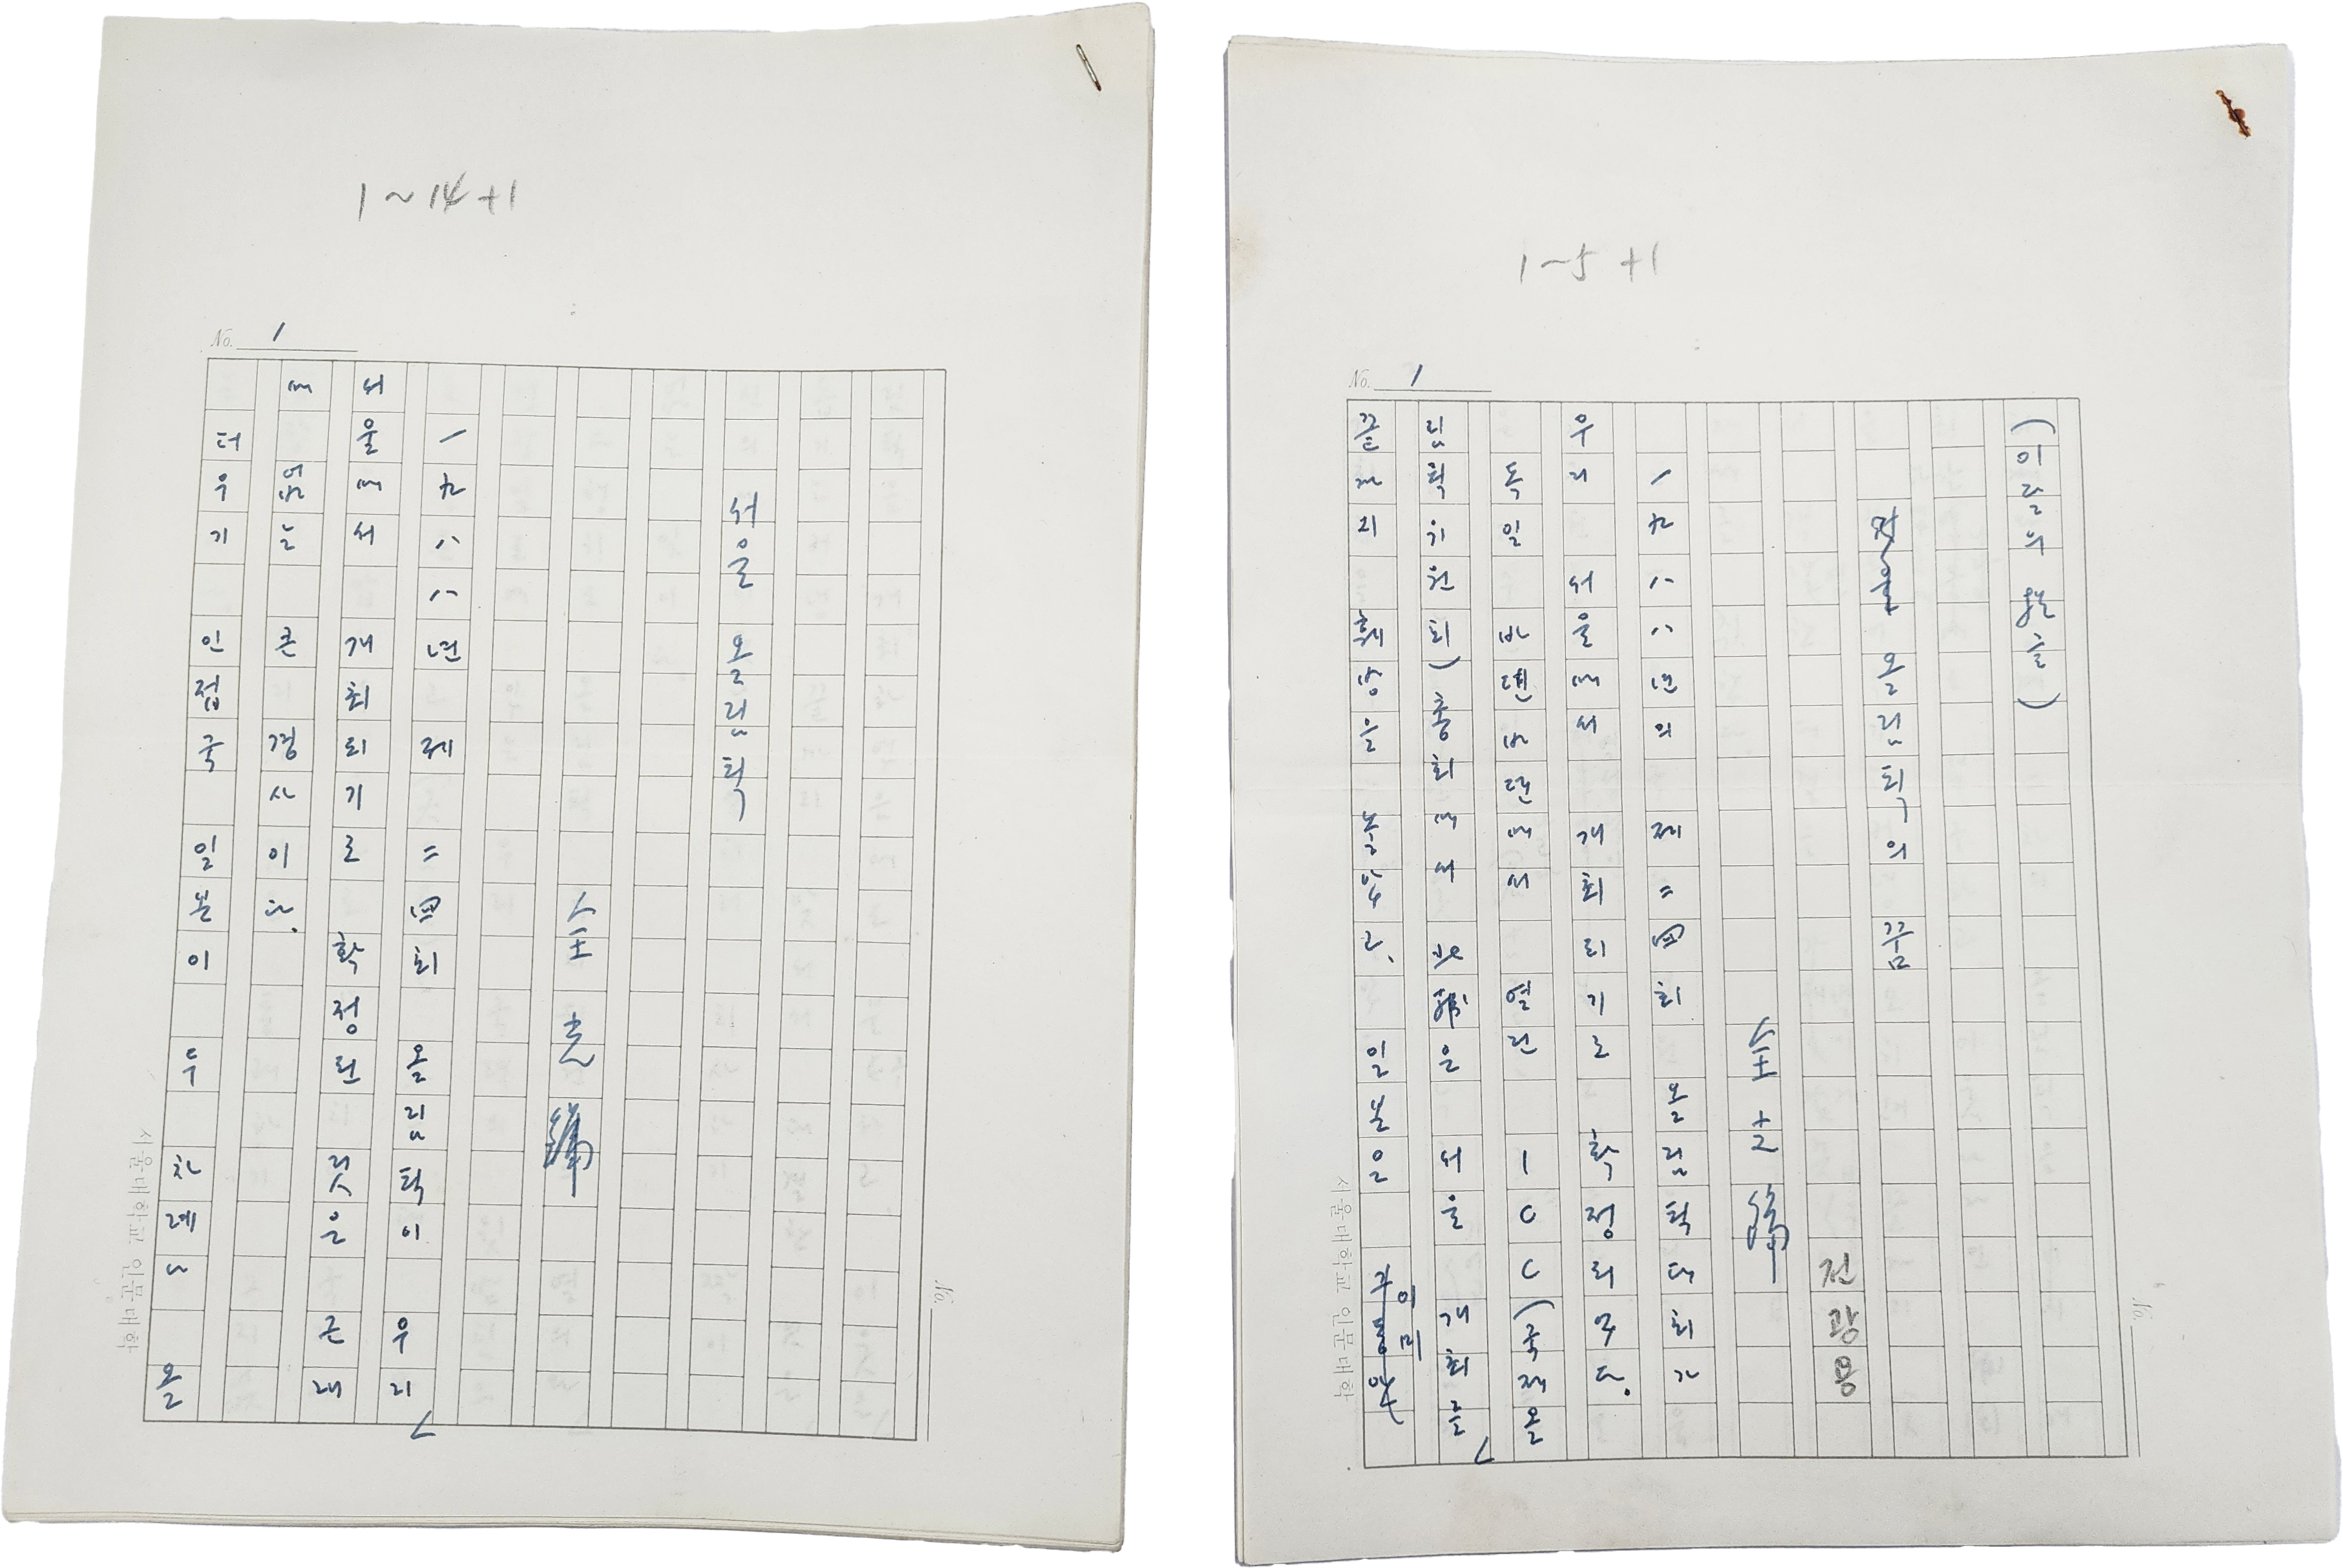 1~14+1
No. 1
서울 올림픽
全光鏞
一九八八년 제二四회 올림픽이 우리
서울에서 개최되기로 확정된 것은 근래
에 없는 큰 경사이다.
더우기 인접국 일본이 두 차례나 올
서울대학교 인문대학
No.
1~5 +1
No. 1
(이달의
올림픽의 꿈
전광용
全光鏞
一九八八년의 제二四회 올림픽대회가
우리 서울에서 개최되기로 확정되었다.
독일 바덴바덴에서 열린 IOC(국제올
림픽위원회)총회에서 서울 개최를
끝까지 훼방을 놓았고, 일본은 이미
서울대학교 인문대학
No.